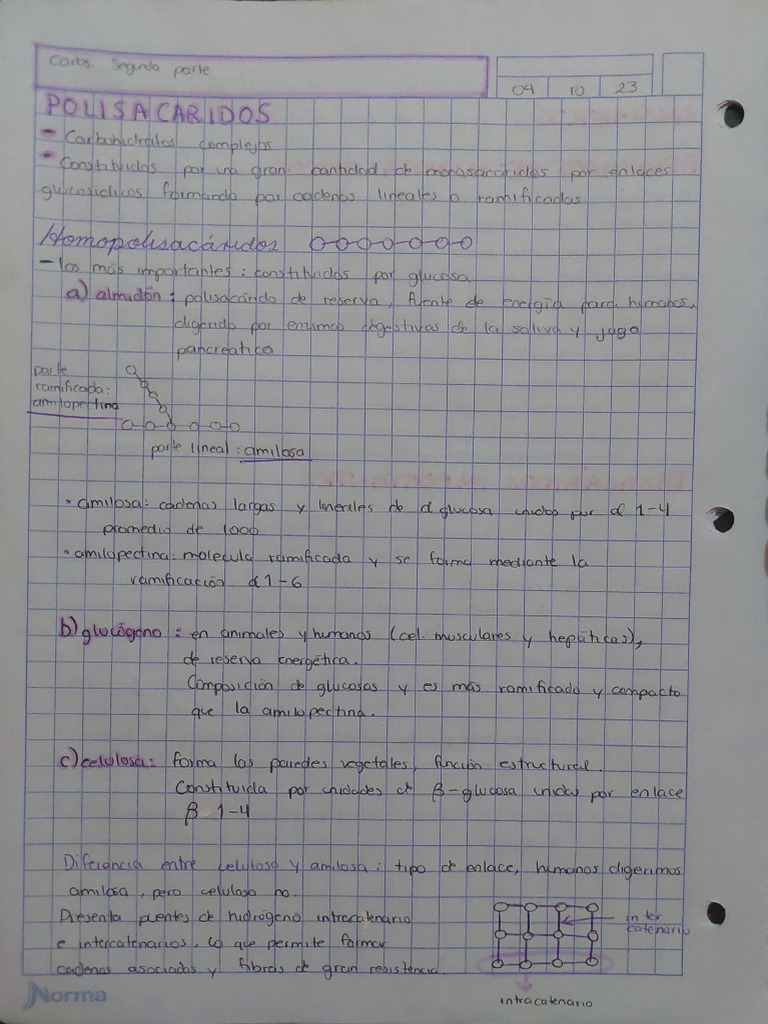 Carbs. Segunda parte
04 10 23
POLISACARIDOS
- Carbohidratos complejos
- Constituidos por una gran cantidad de monosacáridos por enlaces
glucosídicos formando por cadenas lineales o ramificadas
Homopolisacáridos
- los más importantes: constituidos por glucosa
a) almidón: polisacárido de reserva, fuente de energía para humanos,
digerido por enzimas digestivas de la saliva y jugo
pancreático
parte
ramificada:
amilopectina
parte lineal: amilosa
• amilosa: cadenas largas y lineales de d glucosa unidas por α 1-4
promedio de 1000
• amilopectina: molecula ramificada y se forma mediante la
ramificación α 1-6
b) glucógeno: en animales y humanos (cel. musculares y hepáticas),
de reserva energética.
Composición de glucosas y es más ramificado y compacto
que la amilopectina.
c) celulosa: forma las paredes vegetales, función estructural.
Constituida por unidades d β-glucosa unidas por enlace
β 1-4
Diferencia entre celulosa y amilosa: tipo d enlace, humanos digerimos
amilosa, pero celulosa no.
Presenta puentes de hidrógeno intracatenario
e intercatenarios, lo que permite formar
cadenas asociadas y fibras de gran resistencia.
inter
catenario
intracatenario
Norma